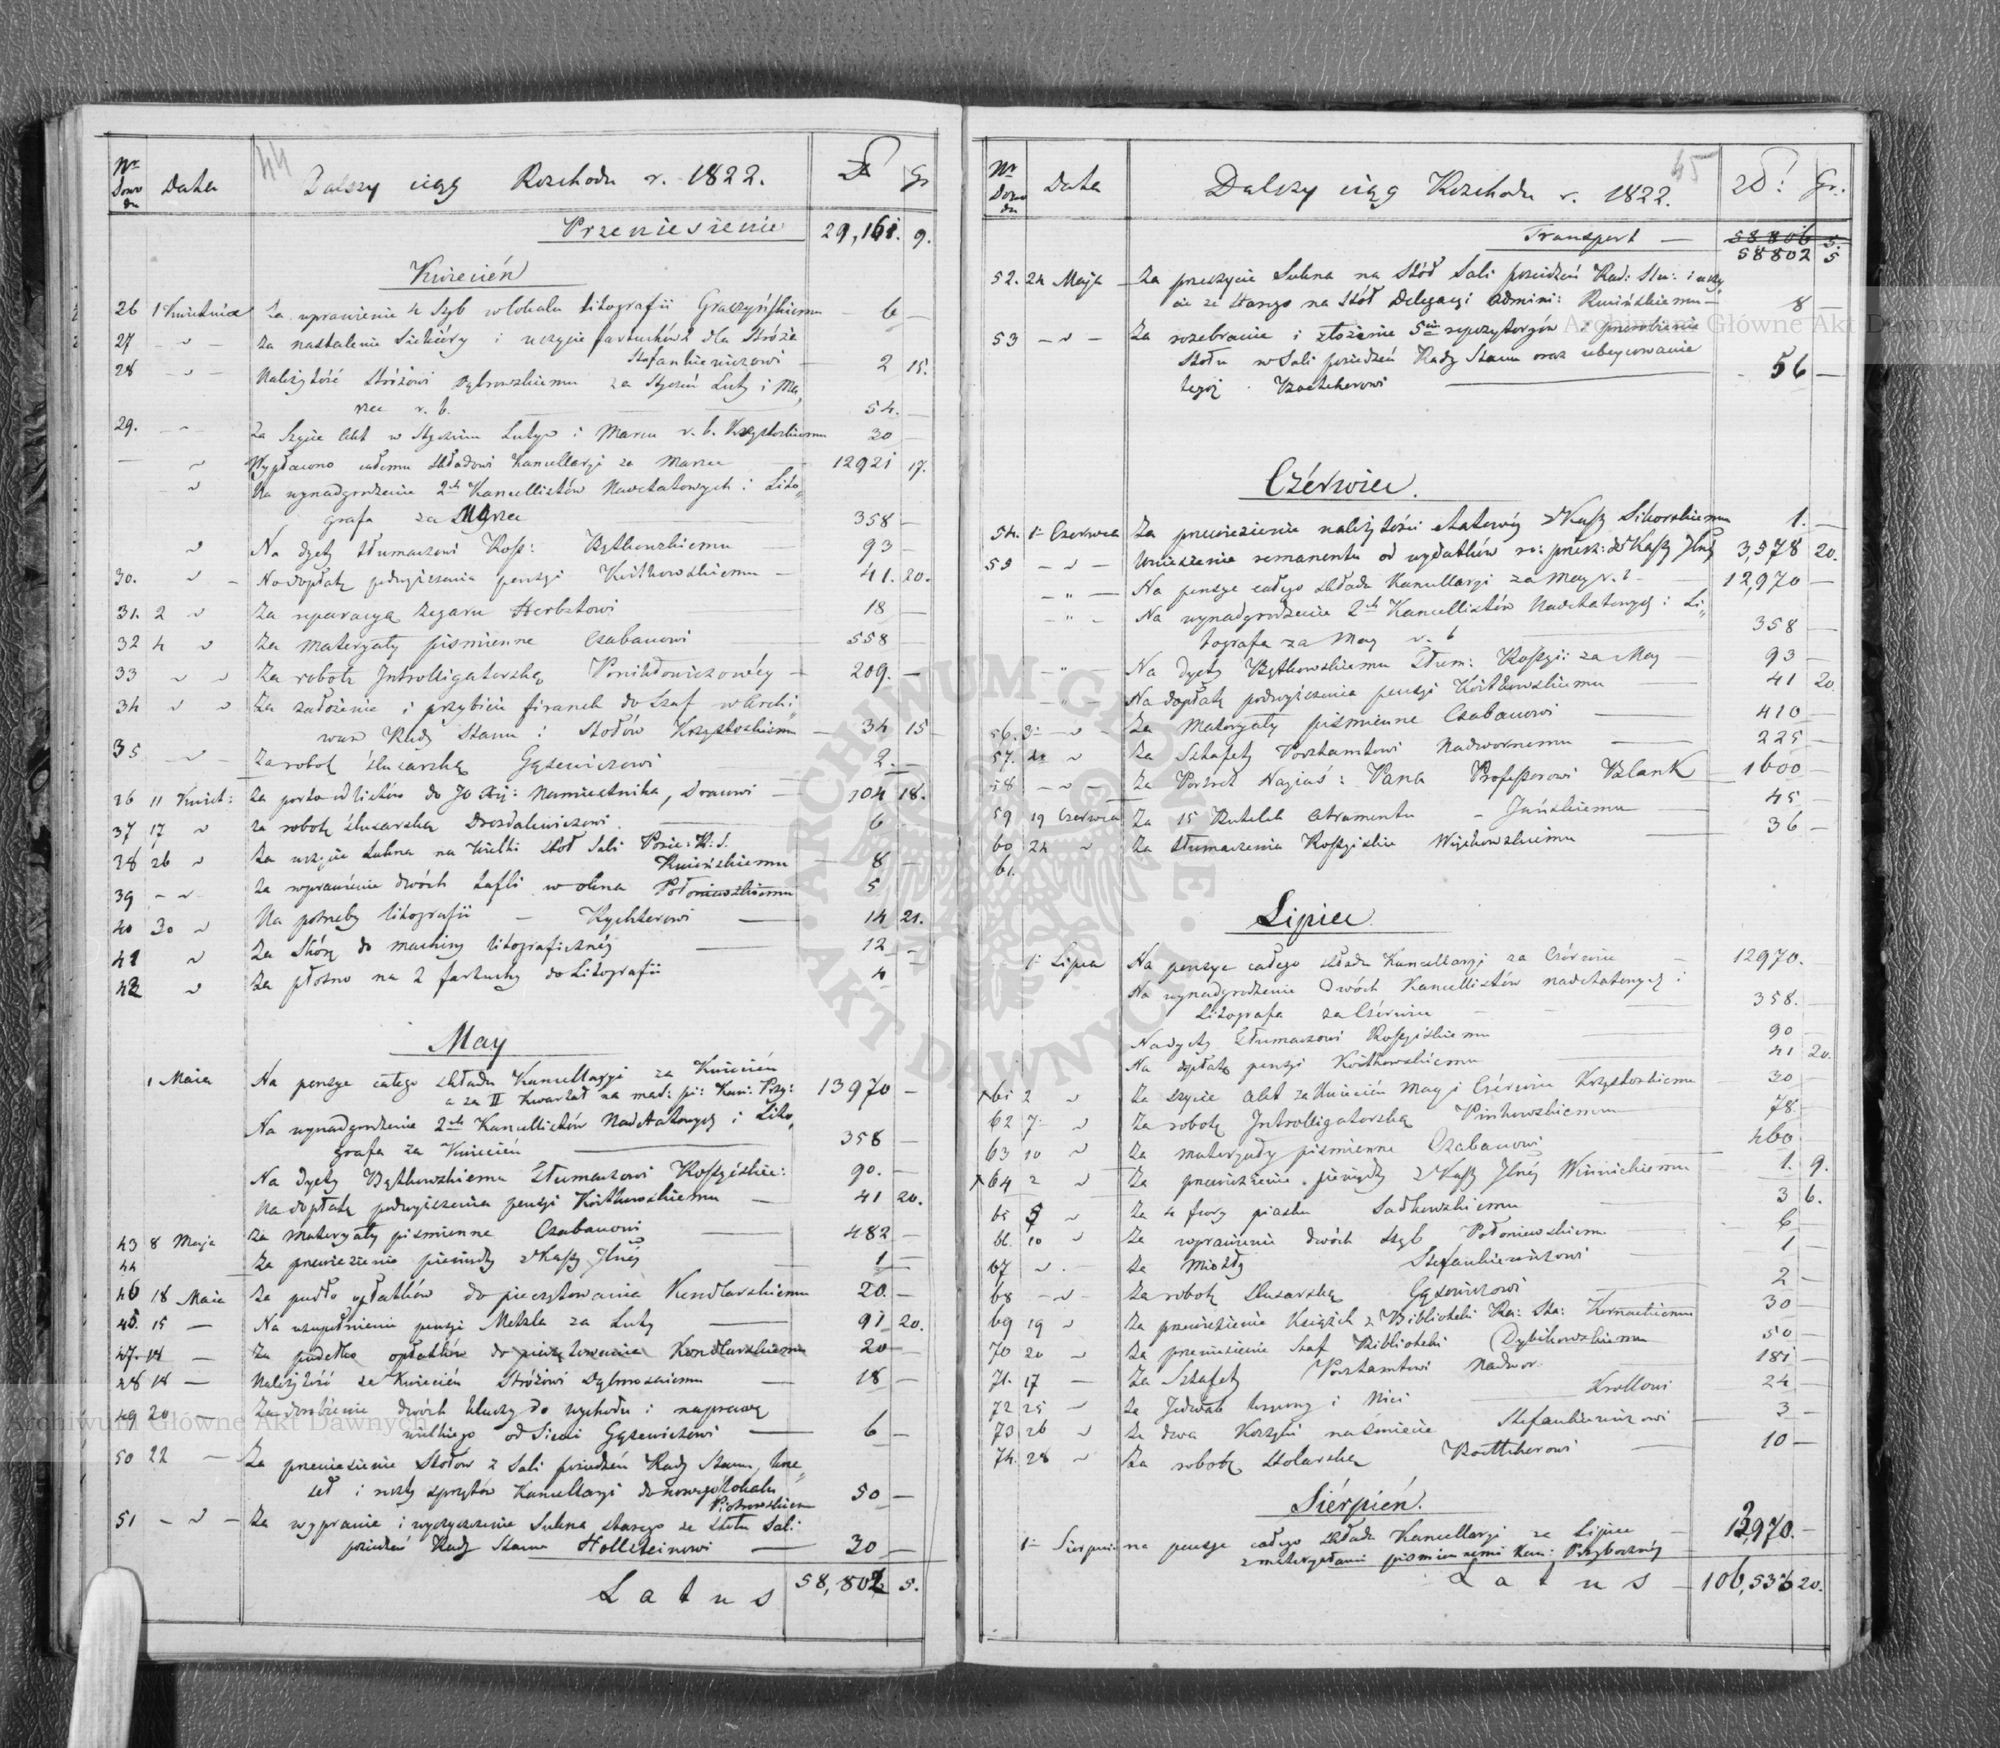 44
Nr Dowo du
Data
Dalszy ciąg Rozchodu r. 1822.
Zł
Gr
Przeniesienie 29,161. 9.
Kwiecień
26 1 Kwietnia Za wprawienie 4 Szyb w lokalu litografii Graczyńskiemu — 6 —
27 — " — Za nastalenie Siekiéry i uszycie fartuchów 2 dla Stróża
Stefankiewiczowi — 2 15.
28 — " — Należytość Stróżowi Dąbrowskiemu za Styczeń Luty i Ma
rzec r. b. 54. —
29. — " Za Szycie Akt w Styczniu Lutym i Marcu r. b. Krzyttoskiemu 30 —
— " Wypłacono całemu składowi Kancellaryi za Marzec 12921 17.
— " Na wynadgrodzenie 2ch Kancellistów Nadetatowych i Lito„
grafa za Marzec 358 —
" Na dyety tłumaczowi Ross: Bętkowskiemu — 93 —
30. " — Na dopłatę podwyższenia pensyi Kwitkowskiemu — 41. 20.
31. 2 " Za reparacyą zegaru Herbstowi 18 —
32 4 " Za materyały piśmienne Czabanowi 558 —
33 " " Za robotę Introlligatorską Ponikłowiczowéy — 209. —
34 " " Za założenie i przybicie firanek do Szaf w Archi„
wum Rady Stanu i Stołów Krzyttoskiemu — 34 15
35 — " Za robotę ślusarską Gąsewiczowi 2. —
36 11 Kwiet: Za porto od listów do JO Xię: Namiestnika, Draewi — 104 18.
37 17 " Za robotę ślusarską Drozdalewiczowi 6 —
38 26 " Za uszycie Sukna na Wielki Stół Sali Posie: R. S.
Rusińskiemu — 8 —
39 — " — Za wprawienie dwóch tafli w okna Połoniewskiemu 5
40 30 " Na potrzeby litografii — Rychterowi — 14 21.
41 " Za Skórę do machiny litograficznéy 12 —
42 " Za płótno na 2 fartuchy do Litografii 4 —
May
1 Maia Na pensye całego składu Kancellaryi za Kwiecień
a za II Kwartał na mat: pi: Kan: Przy: 13970 —
Na wynadgrodzenie 2ch Kancellistów Nadetatowych i Lito„
grafa za Kwiecień 358 —
Na dyety Bętkowskiemu Tłumaczowi Rossyiskie: 90. —
Na dopłatę podwyższenia pensyi Kwitkowskiemu — 41 20.
43 8 Maja Za materyały piśmienne Czabanowi 482 —
44 Za przewiezienie pieniędzy z Kassy Jlnéy 1 —
46 18 Maia Za pudło opłatków do pieczętowania Kendlarskiemu 20 —
45. 15 — Na uzupełnienie pensyi Metzla za Luty 91 20.
47. 14 — Za pudełko opłatków do pieczętowania Kendlarskiemu 20 —
48 18 — Należytość za Kwiecień Stróżowi Dąbrowskiemu — 18 —
49 20 — Za dorobienie dwóch kluczy do wychodu i naprawę
wielkiego od Sieni Gąsewiczowi 6 —
50 22 — Za przeniesienie Stołów z Sali posiedzeń Rady Stanu, Krze„
seł i reszty sprzętów Kancellaryi do nowego lokalu
Piotrowskiem 50 —
51 — " — Za wypranie i wyczyszczenie Sukna starego ze Stołu Sali
posiedzeń Rady Stanu Hollsteinowi — 30 —
Latus 58,802 5.
45
Nr Dowo du
Data
Dalszy ciąg Rozchodu r. 1822.
Zł:
Gr.
Transport — 58806 5.
58802 5
52. 24 Maja — Za przeszycie Sukna na Stół Sali posiedzeń Rad: Stu: i uszy
cie ze Starego na Stół Delegacyi Admini: Rusińskiemu — 8 —
53 — " — Za rozebranie i złożenie 5ciu repozytoryów i przerobienie
Stołu w Sali posiedzeń Rady Stanu oraz
Boettcherowi 56 —
Czérwiec.
54. 1 Czerwca Za przewiezienie należytości etatowéy z Kassy Sikorskiemu 1. —
55 — " — Wniesienie remanentu od wydatków do Kassy Jlnéy 3,578 20.
— " — Na pensye całego składu Kancellaryi za May r. b. 12,970 —
— " — Na wynadgrodzenie 2ch Kancellistów Nadetatowych i Li„
tografa za May r. b 358 —
— " — Na dyety Bętkowskiemu Tłum: Rossyi: za May — 93 —
— " — Na dopłatę podwyższenia pensyi Kwitkowskiemu — 41 20.
56. 3 — " — Za Materyały piśmienne Czabanowi — 410 —
57. 4 " Za Sztafety Postamtowi Nadwornemu — 225 —
58 — " — Za Portret Nayjaś: Pana Professorowi Blank 1600 —
59 19 Czerwca Za 15 Butelek Atramentu — Jańskiemu 45 —
60 24 " Za tłumaczenia Rossyiskie Więckowskiemu 36 —
61.
Lipiec.
1 Lipca Na pensye całego składu Kancellaryi za Czérwiec — 12970. —
Na wynadgrodzenie Dwóch Kancellistów nadetatowych i
Litografa za Czérwiec — 358. —
Na dyety Tłumaczowi Rossyiskiemu 90 —
Na dopłatę pensyi Kwitkowskiemu 41 20.
61 2 " Za szycie Akt za Kwiecień May i Czérwiec Krzyttoskiemu 30 —
62 7 " Za robotę Introlligatorską Pinkowskiemu 78 —
63 10 " Za materyały piśmienne Czabanowi 460 —
64 2 " Za przewiezienie pieniędzy z Kassy Jlnéy Winnickiemu 1. 9.
65 5 " Za 4 fury piasku Sadkowskiemu 3 6.
66. 10 " Za wprawienie dwóch Szyb Połoniewskiem 6 —
67 " Za Miotły Stefankiewiczowi 1 —
68 — " — Za robotę ślusarską Gąsewiczowi 2 —
69 19 " Za przewiezienie Książek z Biblioteki Ra: Sta: 30 —
70 20 " Za przeniesienie Szaf Biblioteki Dybikowskiemu 50 —
71. 17 — Za Sztafety Postamtowi Nadwor: 181 —
72 25 " Za Jedwab i Nici Krollowi 24 —
73 26 " Za dwa Koszyki na śmiecie Stefankiewiczowi 3 —
74. 28 " Za robotę Stolarską Boettcherowi 10 —
Siérpień.
1 Sierpnia na pensye całego składu Kancellaryi za Lipiec —
z materyałami piśmiennemi Kan: Przybocznéy 13,970. —
Latus — 106,536 20.
ARCHIWUM GŁÓWNE AKT DAWNYCH
Archiwum Główne Akt Dawnych
Archiwum Główne Akt Dawnych